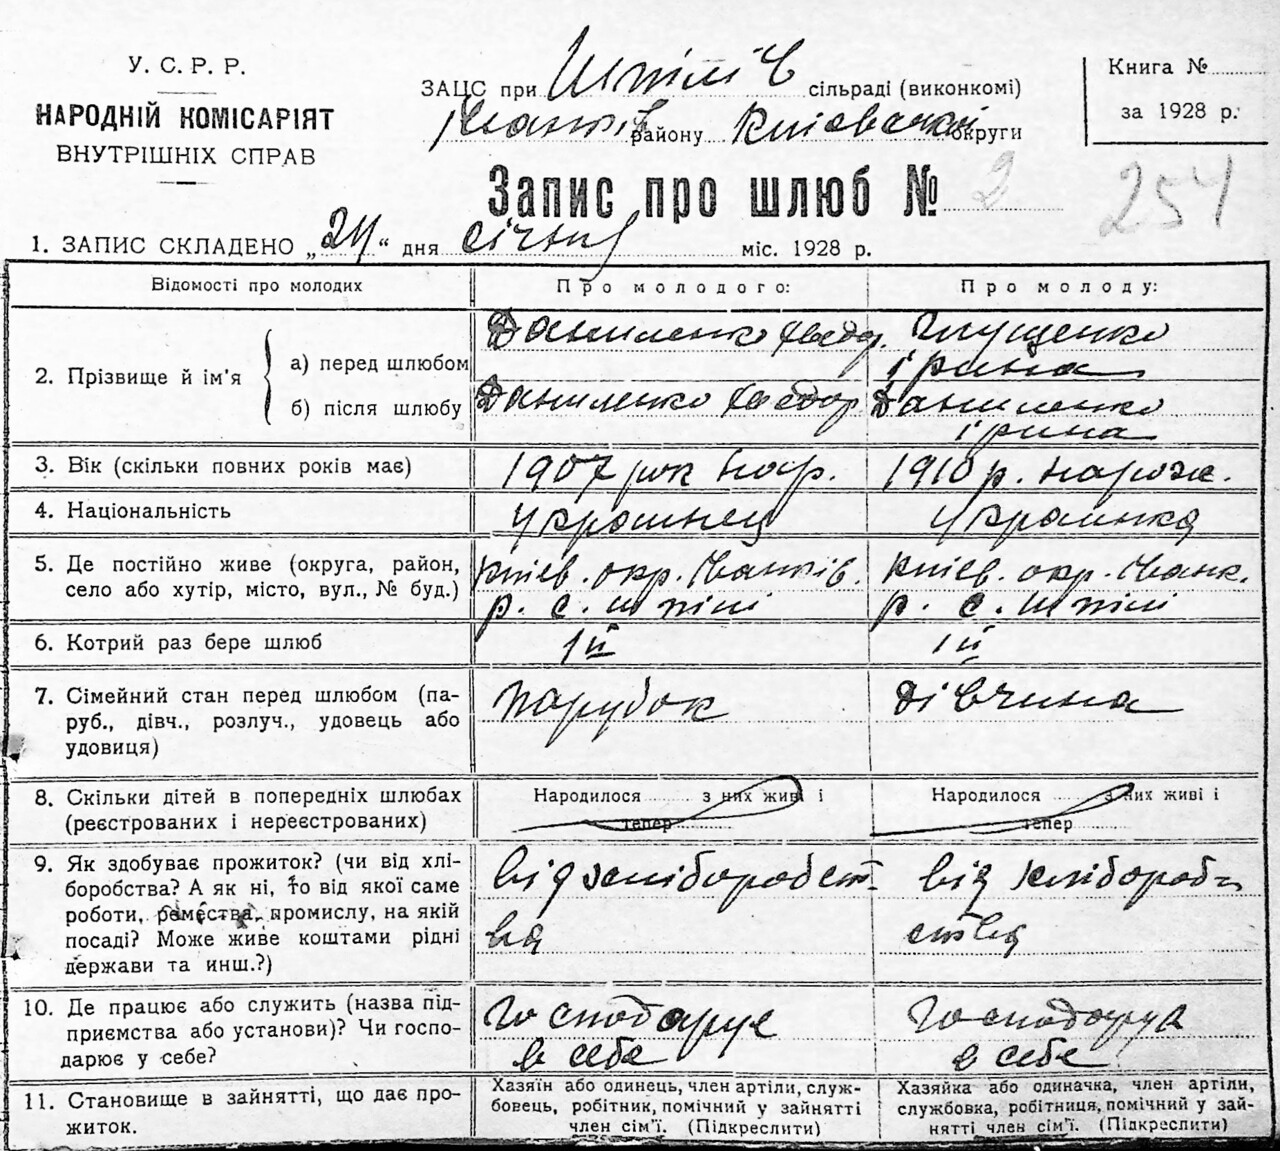 У. С. Р. Р.
НАРОДНІЙ КОМІСАРІЯТ
ВНУТРІШНІХ СПРАВ
ЗАЦС при Шпілів сільраді (виконкомі)
Іванків району Київської округи
Книга №
за 1928 р.
Запис про шлюб № 2
254
1. ЗАПИС СКЛАДЕНО „24“ дня січня міс. 1928 р.
Відомості про молодих
Про молодого:
Про молоду:
2. Прізвище й ім'я
а) перед шлюбом
Даниленко Хведор.
Глущенко
Ірина
б) після шлюбу
Даниленко Хведор
Даниленко
Ірина
3. Вік (скільки повних років має)
1907 рок нар.
1910 р. нарож.
4. Національність
Українец
Українка
5. Де постійно живе (округа, район,
село або хутір, місто, вул., № буд.)
Київ. окр. Іванків.
р. с. Шпілі
Київ. окр. Іванк.
р. с. Шпілі
6. Котрий раз бере шлюб
1й
1й
7. Сімейний стан перед шлюбом (па-
руб., дівч., розлуч., удовець або
удовиця)
парубок
дівчина
8. Скільки дітей в попередніх шлюбах
(реєстрованих і нереєстрованих)
Народилося з них живі і
тепер
Народилося з них живі і
тепер
9. Як здобуває прожиток? (чи від хлі-
боробства? А як ні, то від якої саме
роботи, ремества, промислу, на якій
посаді? Може живе коштами рідні
держави та инш.?)
від хліборобст-
ва
від хлібороб-
ства
10. Де працює або служить (назва під-
приємства або установи)? Чи госпо-
дарює у себе?
Господарує
в себе
Господарує
в себе
11. Становище в зайнятті, що дає про-
житок.
Хазяїн або одинець, член артіли, служ-
бовець, робітник, помічний у зайнятті
член сім'ї. (Підкреслити)
Хазяйка або одиначка, член артіли,
службовка, робітниця, помічний у зай-
нятті член сім'ї. (Підкреслити)